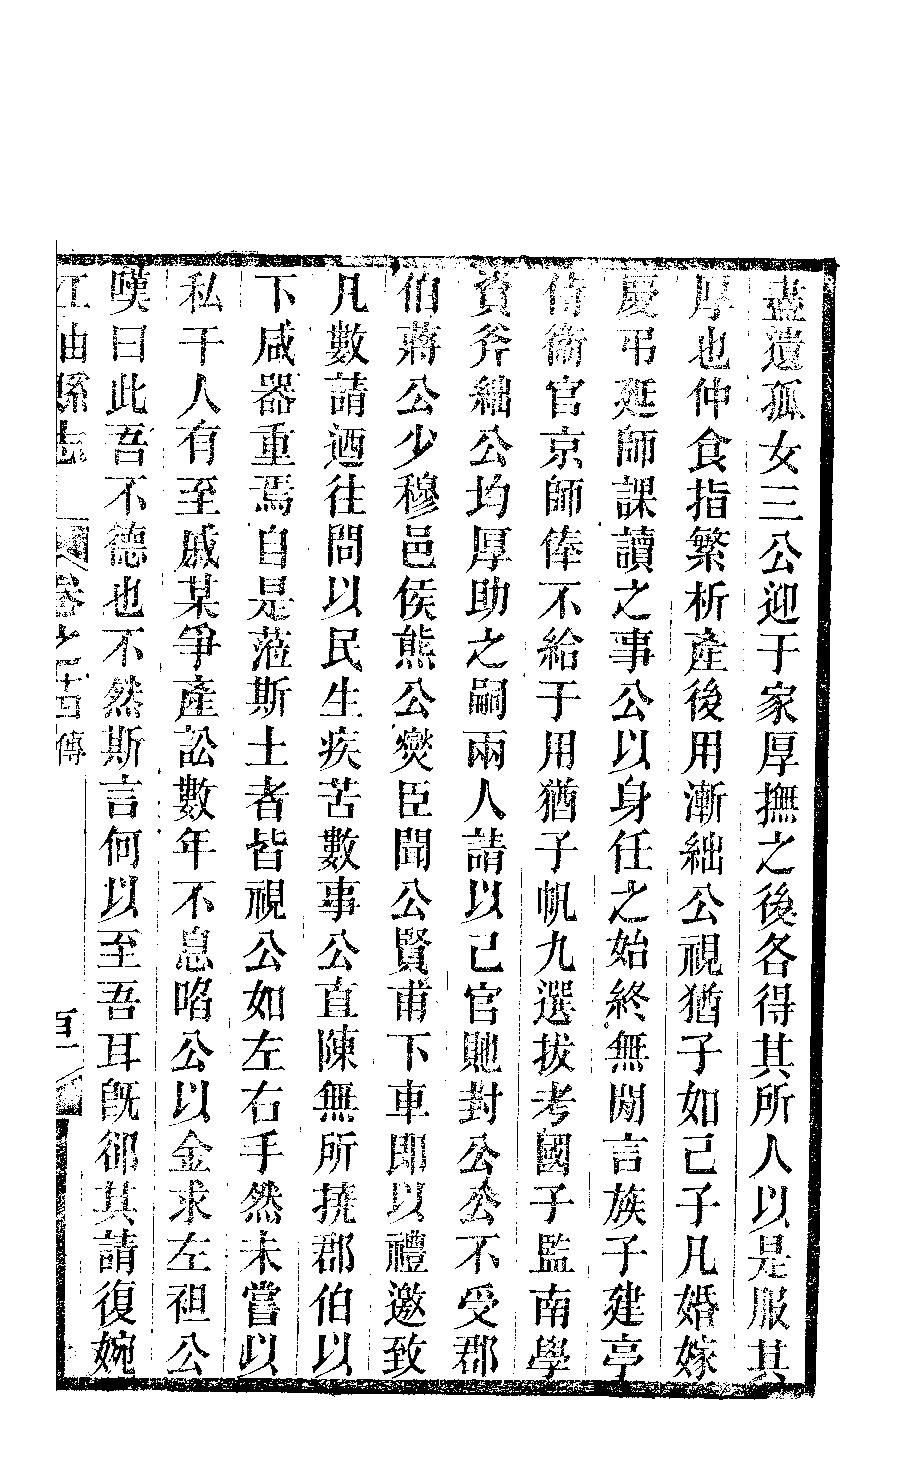 盡遺孤女三公迎于家厚撫之後各得其所人以是服其
厚也仲食指繁析產後用漸絀公視猶子如己子凡婚嫁
慶弔延師課讀之事公以身任之始終無閒言族子建亭
侍衞官京師俸不給于用猶子帆九選拔考國子監南學
資斧絀公均厚助之嗣兩人請以己官貤封公公不受郡
伯蔣公少穆邑侯熊公爕臣聞公賢甫下車即以禮邀致
凡數請迺往問以民生疾苦數事公直陳無所撓郡伯以
下咸器重焉自是蒞斯土者皆視公如左右手然未嘗以
私干人有至戚某爭產訟數年不息啗公以金求左袒公
嘆曰此吾不德也不然斯言何以至吾耳旣郤其請復婉
江油縣志 卷之 傳